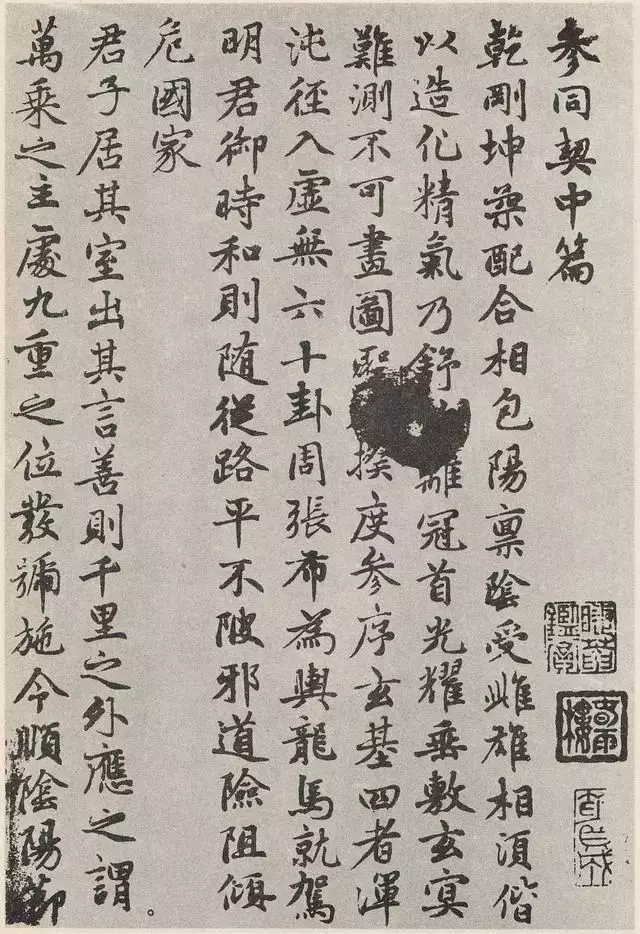 参同契中篇
乾剛坤柔配合相包陽禀陰受雌雄相須偕
以造化精氣乃舒離冠首光耀垂敷玄冥
難測不可畫圖聖揆度参序玄基四者渾
沌徑入虛無六十卦周張布為輿龍馬就駕
明君御時和則随從路平不陂邪道險阻傾
危國家
君子居其室出其言善則千里之外應之謂。
萬乘之主處九重之位發號施令順陰陽節